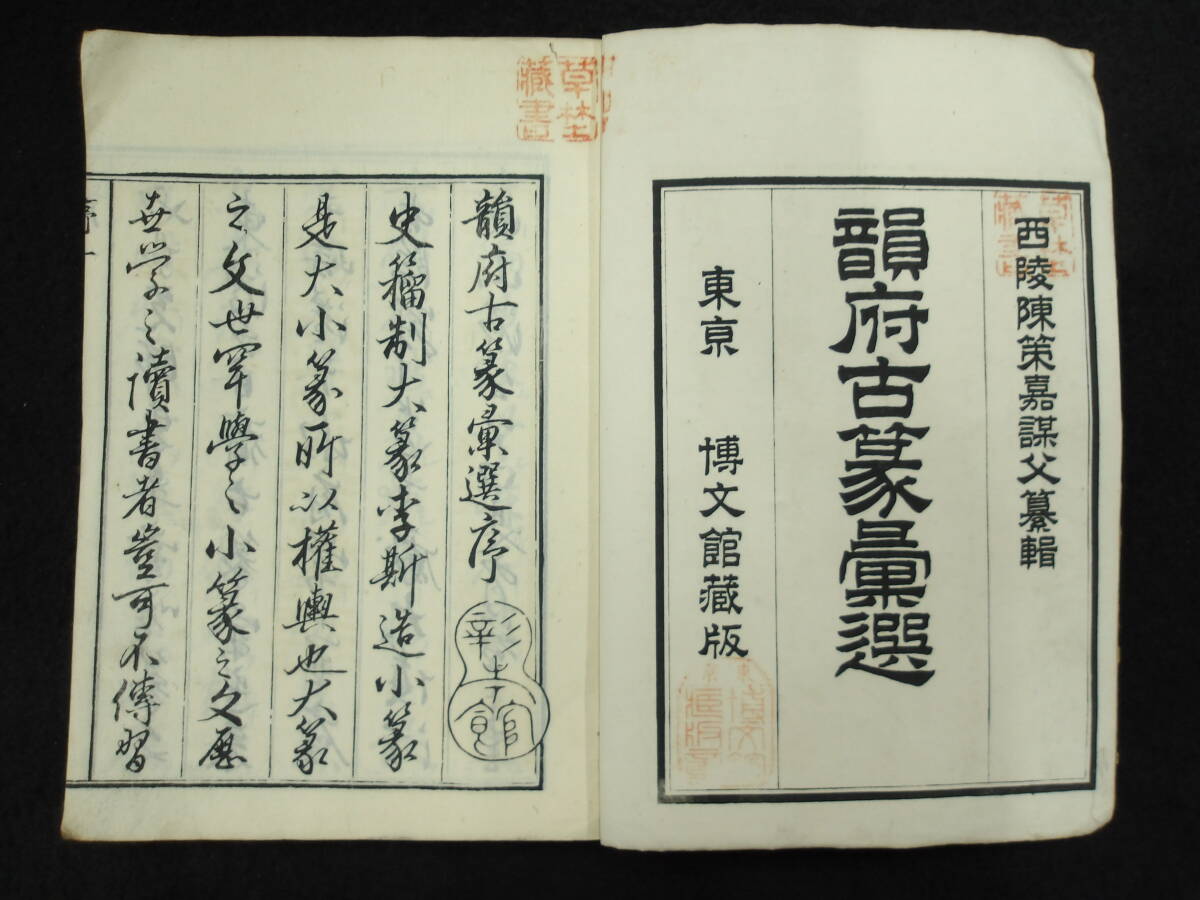 西陵陳策嘉謀父纂輯
韻府古篆彙選
東京 博文館藏版
韻府古篆彙選序
史籀制大篆李斯造小篆
是大小篆所以權輿也大篆
之文世罕學之小篆之文歷
世学之讀書者豈可不傳習
序一
彰考館
藏書